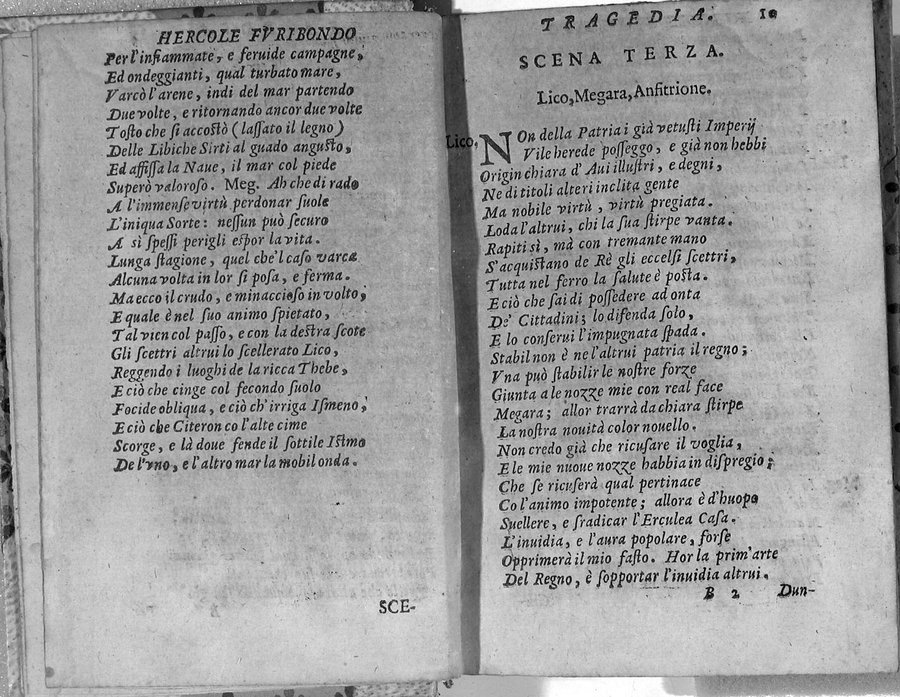 HERCOLE FVRIBONDO
Per l'infiammate, e feruide campagne,
Ed ondeggianti, qual turbato mare,
Varcò l'arene, indi del mar partendo
Due volte, e ritornando ancor due volte
Tosto che si accostò (lassato il legno)
Delle Libiche Sirti al guado angusto,
Ed affissa la Naue, il mar col piede
Superò valoroso. Meg. Ah che di rado
A l'immense virtù perdonar suole
L'iniqua Sorte: nessun può securo
A sì spessi perigli espor la vita.
Lunga stagione, quel che'l caso varca
Alcuna volta in lor si posa, e ferma.
Ma ecco il crudo, e minaccioso in volto,
E quale è nel suo animo spietato,
Tal vien col passo, e con la destra scote
Gli scettri altrui lo scellerato Lico,
Reggendo i luoghi de la ricca Thebe,
E ciò che cinge col fecondo suolo
Focide obliqua, e ciò ch'irriga Ismeno,
E ciò che Citeron co l'alte cime
Scorge, e là doue fende il sottile Istmo
De l'vno, e l'altro mar la mobil onda.
SCE-
TRAGEDIA. 10
SCENA TERZA.
Lico, Megara, Anfitrione.
Lico. NOn della Patria i già vetusti Imperij
Vile herede posseggo, e già non hebbi
Origin chiara d'Aui illustri, e degni,
Ne di titoli alteri inclita gente
Ma nobile virtù, virtù pregiata.
Loda l'altrui, chi la sua stirpe vanta.
Rapiti sì, mà con tremante mano
S'acquistano de Rè gli eccelsi scettri,
Tutta nel ferro la salute è posta.
E ciò che sai di possedere ad onta
De' Cittadini; lo difenda solo,
E lo conserui l'impugnata spada.
Stabil non è ne l'altrui patria il regno;
Vna può stabilir le nostre forze
Giunta a le nozze mie con real face
Megara; allor trarrà da chiara stirpe
La nostra nouità color nouello.
Non credo già che ricusare il voglia,
E le mie nuoue nozze habbia in dispregio;
Che se ricuserà qual pertinace
Co l'animo impotente; allora è d'huopo
Suellere, e sradicar l'Erculea Casa.
L'inuidia, e l'aura popolare, forse
Opprimerà il mio fasto. Hor la prim'arte
Del Regno, è sopportar l'inuidia altrui.
B 2 Dun-